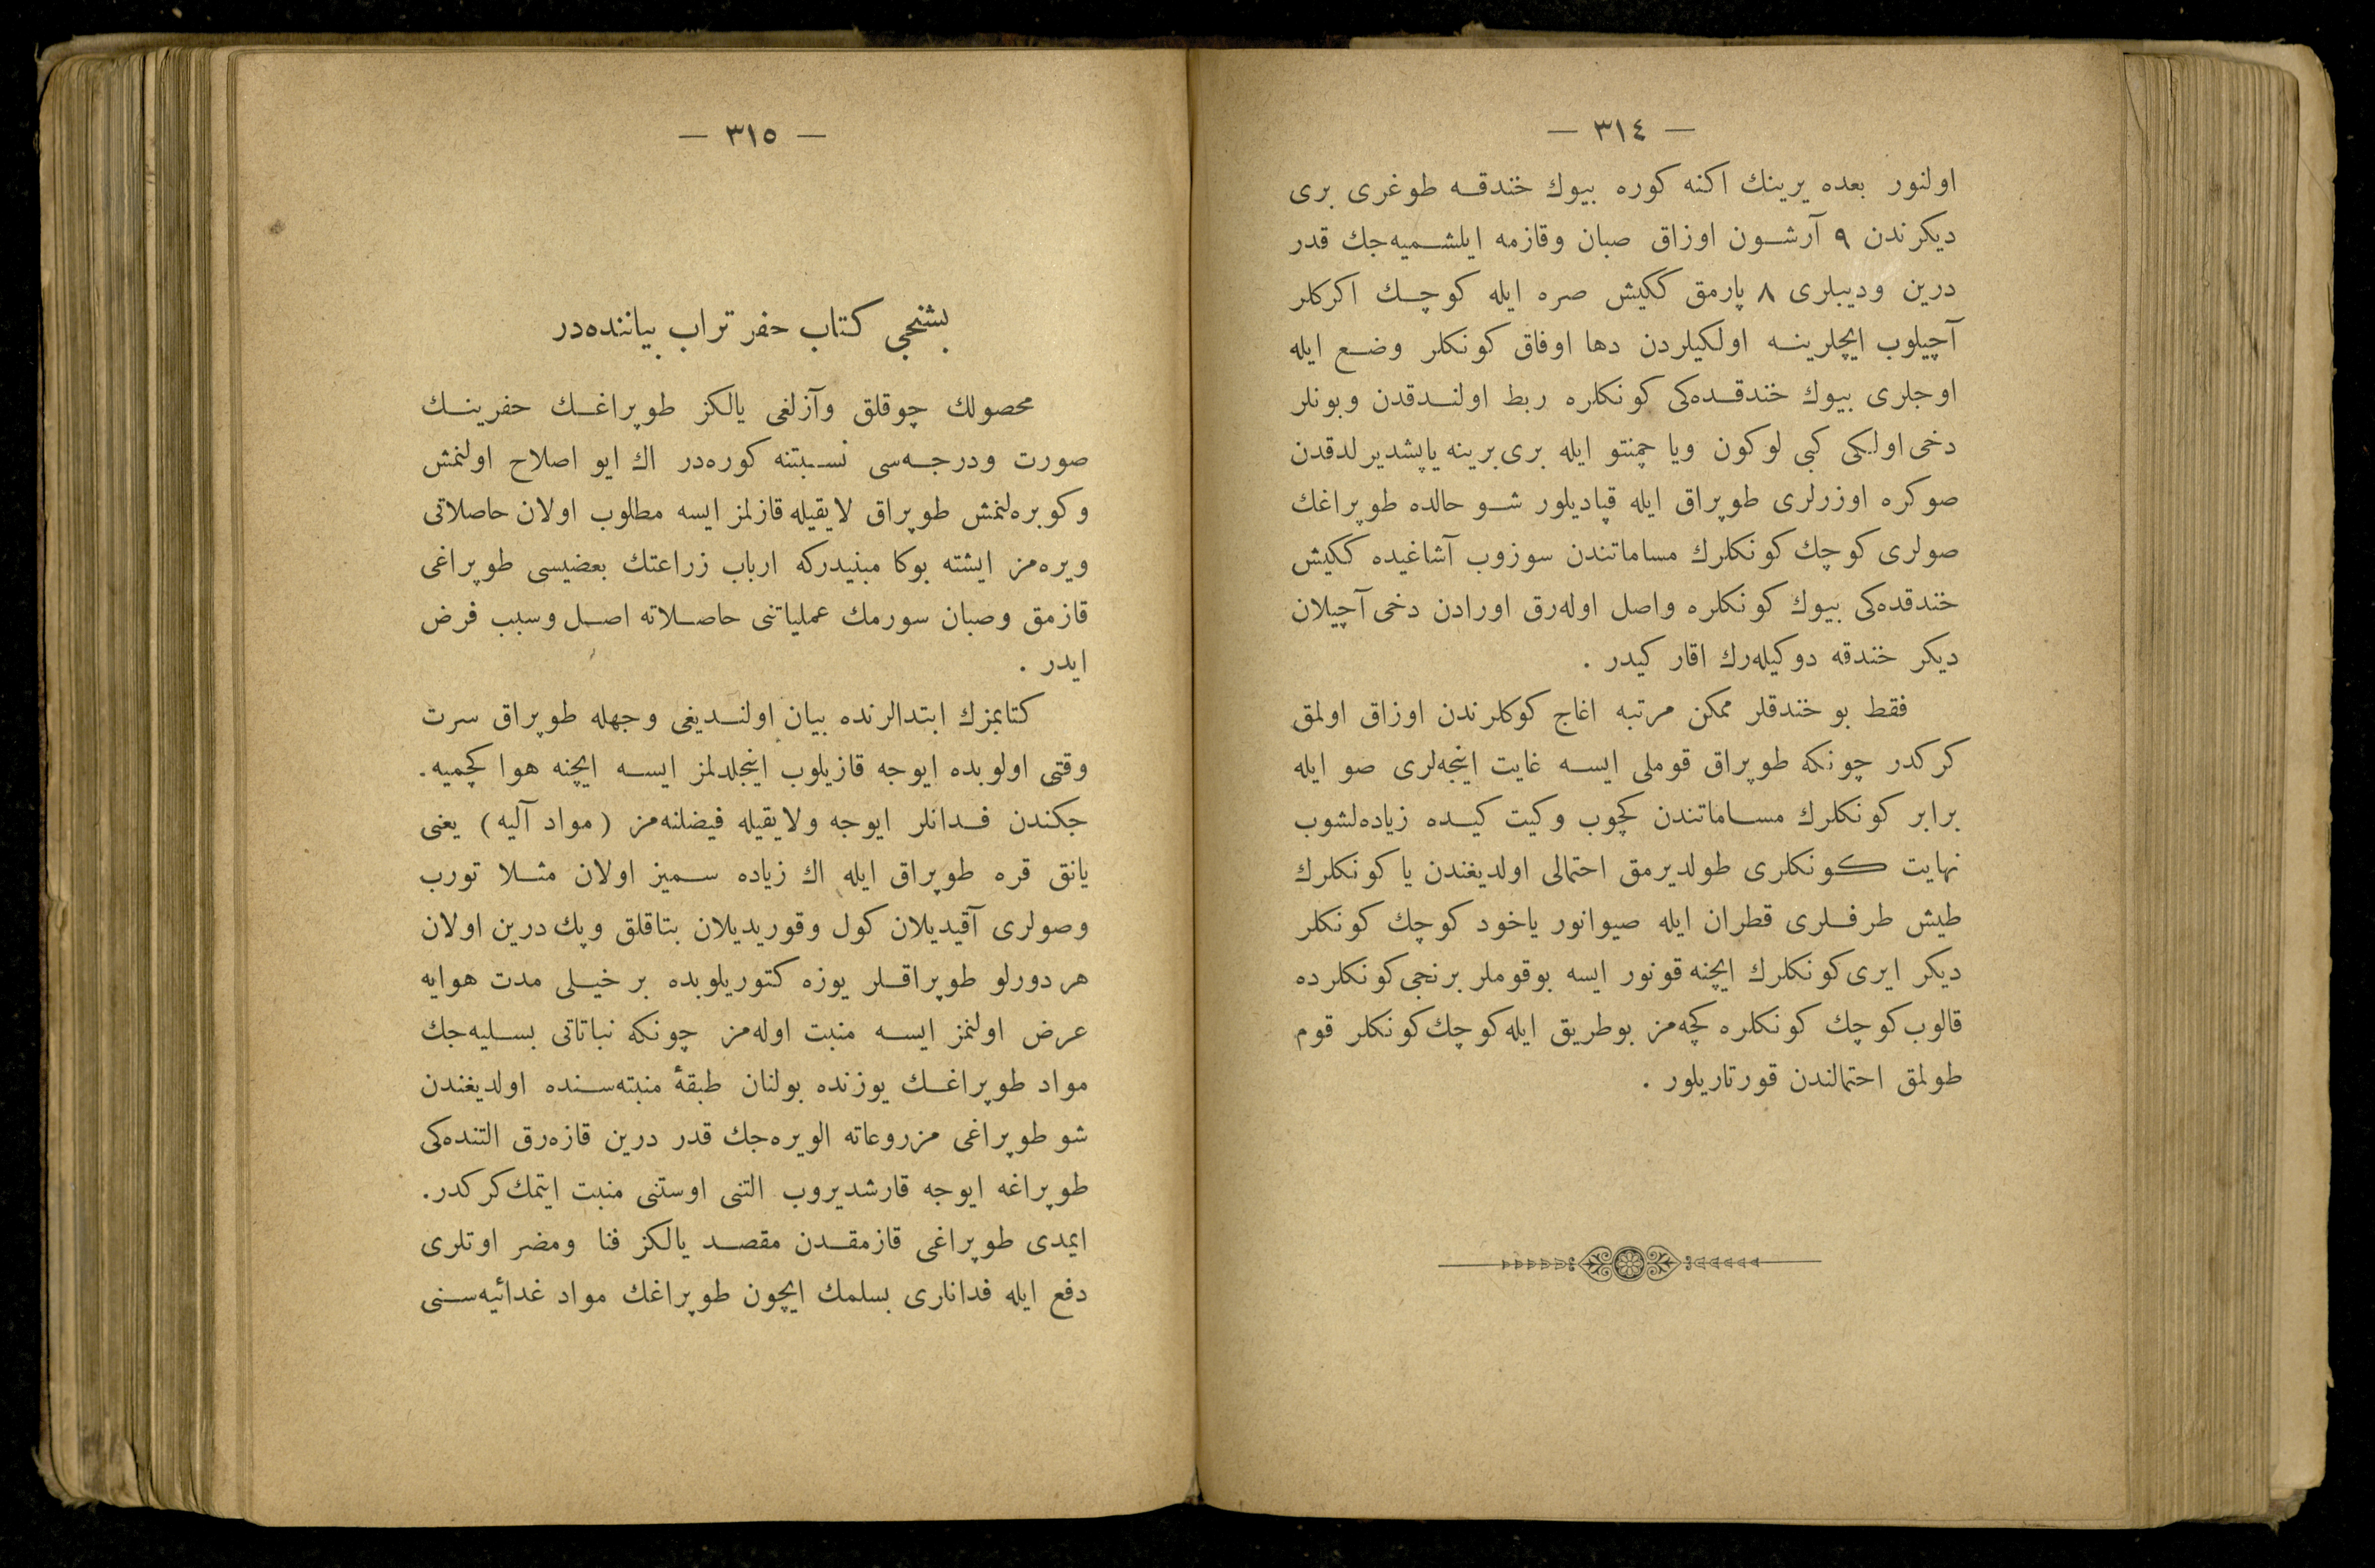 — ٣١٤ —
اولنور بعده يرينك اكنه كوره بيوك خندقه طوغرى برى
ديكرندن ٩ آرشون اوزاق صبان وقازمه ايلشميه‌جك قدر
درين وديبلرى ٨ پارمق ككيش صره ايله كوچك اكركلر
آچيلوب ايچلرينه اولكيلردن دها اوفاق كونكلر وضع ايله
اوجلرى بيوك خندقده‌كى كونكلره ربط اولندقدن وبونلر
دخى اولكى كبى لوكون ويا چمنتو ايله برى برينه ياپشديرلدقدن
صوكره اوزرلرى طوپراق ايله قپاديلور شو حالده طوپراغك
صولرى كوچك كونكلرك مساماتندن سوزوب آشاغيده ككيش
خندقده‌كى بيوك كونكلره واصل اوله‌رق اورادن دخى آچيلان
ديكر خندقه دوكيله‌رك اقار كيدر .
فقط بو خندقلر ممكن مرتبه اغاج كوكلرندن اوزاق اولمق
كركدر چونكه طوپراق قوملى ايسه غايت اينجه‌لرى صو ايله
برابر كونكلرك مساماتندن كچوب وكيت كيده زياده‌لشوب
نهايت كونكلرى طولديرمق احتمالى اولديغندن يا كونكلرك
طيش طرفلرى قطران ايله صيوانور ياخود كوچك كونكلر
ديكر ايرى كونكلرك ايچنه قونور ايسه بوقوملر برنجى كونكلرده
قالوب كوچك كونكلره كچه‌مز بوطريق ايله كوچك كونكلر قوم
طولمق احتمالندن قورتاريلور .
— ٣١٥ —
بشنجى كتاب حفر تراب بياننده‌در
محصولك چوقلق وآزلغى يالكز طوپراغك حفرينك
صورت ودرجه‌سى نسبتنه كوره‌در اك ايو اصلاح اولنمش
وكوبره‌لنمش طوپراق لايقيله قازلمز ايسه مطلوب اولان حاصلاتى
ويره‌مز ايشته بوكا مبنيدركه ارباب زراعتك بعضيسى طوپراغى
قازمق وصبان سورمك عملياتنى حاصلاته اصل وسبب فرض
ايدر .
كتابمزك ابتدالرنده بيان اولنديغى وجهله طوپراق سرت
وقتى اولوبده ايوجه قازيلوب اينجلدلمز ايسه ايچنه هوا كچميه.
جكندن فدانلر ايوجه ولايقيله فيضلنه‌مز (مواد آليه) يعنى
يانق قره طوپراق ايله اك زياده سميز اولان مثلا تورب
وصولرى آقيديلان كول وقوريديلان بتاقلق وپك درين اولان
هر دورلو طوپراقلر يوزه كتوريلوبده بر خيلى مدت هوايه
عرض اولنمز ايسه منبت اوله‌مز چونكه نباتاتى بسليه‌جك
مواد طوپراغك يوزنده بولنان طبقهٔ منبته‌سنده اولديغندن
شو طوپراغى مزروعاته الويره‌جك قدر درين قازه‌رق التنده‌كى
طوپراغه ايوجه قارشديروب التنى اوستنى منبت ايتمك كركدر.
ايمدى طوپراغى قازمقدن مقصد يالكز فنا ومضر اوتلرى
دفع ايله فدانارى بسلمك ايچون طوپراغك مواد غدائيه‌سنى